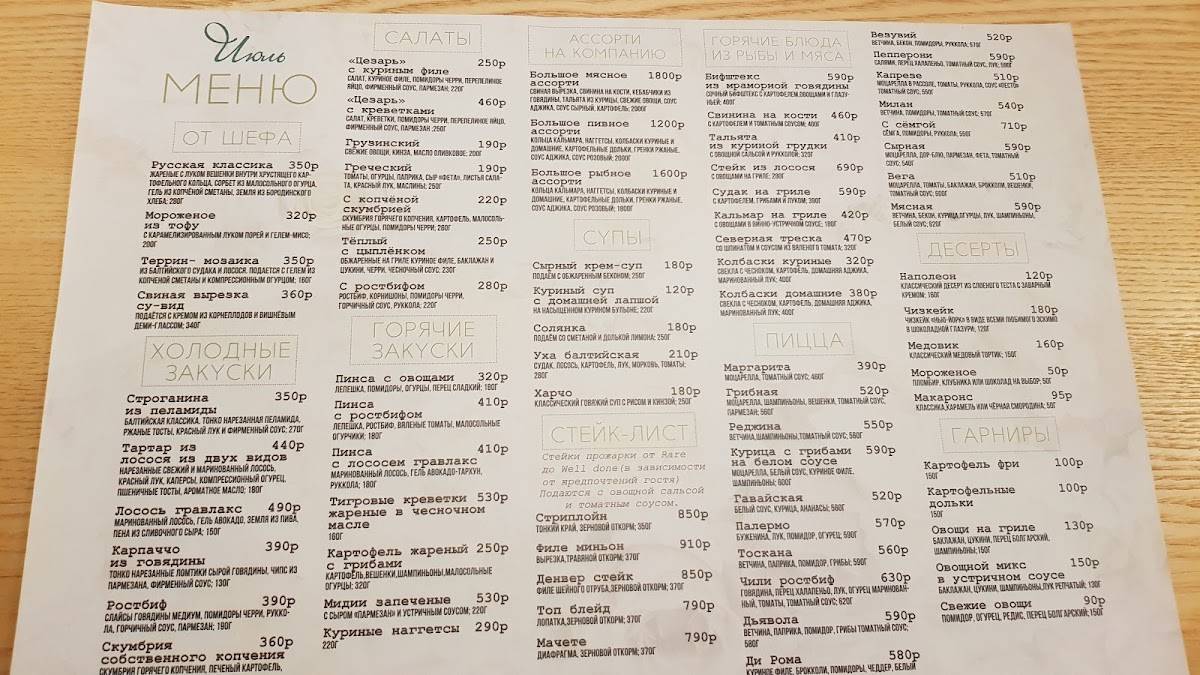 Июль
МЕНЮ
ОТ ШЕФА
Русская классика 350р
ЖАРЕНЫЕ С ЛУКОМ ВЕШЕНКИ ВНУТРИ ХРУСТЯЩЕГО КАР-
ТОФЕЛЬНОГО КОЛЬЦА, СОРБЕТ ИЗ МАЛОСОЛЬНОГО ОГУРЦА,
ГЕЛЬ ИЗ КОПЧЁНОЙ СМЕТАНЫ, ЗЕМЛЯ ИЗ БОРОДИНСКОГО
ХЛЕБА; 280Г
Мороженое 320р
из тофу
С КАРАМЕЛИЗИРОВАННЫМ ЛУКОМ ПОРЕЙ И ГЕЛЕМ-МИСО;
200Г
Террин- мозаика 350р
ИЗ БАЛТИЙСКОГО СУДАКА И ЛОСОСЯ. ПОДАЕТСЯ С ГЕЛЕМ ИЗ
КОПЧЕНОЙ СМЕТАНЫ И КОМПРЕССИОННЫМ ОГУРЦОМ; 160Г
Свиная вырезка 360р
су-вид
ПОДАЁТСЯ С КРЕМОМ ИЗ КОРНЕПЛОДОВ И ВИШНЁВЫМ
ДЕМИ-ГЛАССОМ; 340Г
ХОЛОДНЫЕ
ЗАКУСКИ
Строганина 350р
из пеламиды
БАЛТИЙСКАЯ КЛАССИКА. ТОНКО НАРЕЗАННАЯ ПЕЛАМИДА,
РЖАНЫЕ ТОСТЫ, КРАСНЫЙ ЛУК И ФИРМЕННЫЙ СОУС; 270Г
Тартар из 440р
лосося из двух видов
НАРЕЗАННЫЕ СВЕЖИЙ И МАРИНОВАННЫЙ ЛОСОСЬ,
КРАСНЫЙ ЛУК, КАПЕРСЫ, КОМПРЕССИОННЫЙ ОГУРЕЦ,
ПШЕНИЧНЫЕ ТОСТЫ, АРОМАТНОЕ МАСЛО; 180Г
Лосось гравлакс 490р
МАРИНОВАННЫЙ ЛОСОСЬ, ГЕЛЬ АВОКАДО, ЗЕМЛЯ ИЗ ПИВА,
ПЕНА ИЗ СЛИВОЧНОГО СЫРА; 150Г
Карпаччо 390р
из говядины
ТОНКО НАРЕЗАННЫЕ ЛОМТИКИ СЫРОЙ ГОВЯДИНЫ, ЧИПС ИЗ
ПАРМЕЗАНА, ФИРМЕННЫЙ СОУС; 130Г
Ростбиф 390р
СЛАЙСЫ ГОВЯДИНЫ МЕДИУМ, ПОМИДОРЫ ЧЕРРИ, РУККО-
ЛА, ГОРЧИЧНЫЙ СОУС, ПАРМЕЗАН; 180Г
Скумбрия 360р
собственного копчения
СКУМБРИЯ ГОРЯЧЕГО КОПЧЕНИЯ, ПЕЧЕНЫЙ КАРТОФЕЛЬ,
САЛАТЫ
«Цезарь» 250р
с куриным филе
САЛАТ, КУРИНОЕ ФИЛЕ, ПОМИДОРЫ ЧЕРРИ, ПЕРЕПЕЛИНОЕ
ЯЙЦО, ФИРМЕННЫЙ СОУС, ПАРМЕЗАН; 220Г
«Цезарь» 460р
с креветками
САЛАТ, КРЕВЕТКИ, ПОМИДОРЫ ЧЕРРИ, ПЕРЕПЕЛИНОЕ ЯЙЦО,
ФИРМЕННЫЙ СОУС, ПАРМЕЗАН ;250Г
Грузинский 190р
СВЕЖИЕ ОВОЩИ, КИНЗА, МАСЛО ОЛИВКОВОЕ; 200Г
Греческий 190р
ТОМАТЫ, ОГУРЦЫ, ПАПРИКА, СЫР «ФЕТА», ЛИСТЬЯ САЛА-
ТА, КРАСНЫЙ ЛУК, МАСЛИНЫ; 260Г
С копчёной 220р
скумбрией
СКУМБРИЯ ГОРЯЧЕГО КОПЧЕНИЯ, КАРТОФЕЛЬ, МАЛОСОЛЬ-
НЫЕ ОГУРЦЫ, ПОМИДОРЫ ЧЕРРИ; 260Г
Тёплый 250р
с цыплёнком
ОБЖАРЕННЫЕ НА ГРИЛЕ КУРИНОЕ ФИЛЕ, БАКЛАЖАН И
ЦУКИНИ, ЧЕРРИ, ЧЕСНОЧНЫЙ СОУС; 230Г
С ростбифом 280р
РОСТБИФ, КОРНИШОНЫ, ПОМИДОРЫ ЧЕРРИ,
ГОРЧИЧНЫЙ СОУС, РУККОЛА; 220Г
ГОРЯЧИЕ
ЗАКУСКИ
Пинса с овощами 320р
ЛЕПЕШКА, ПОМИДОРЫ, ОГУРЦЫ, ПЕРЕЦ СЛАДКИЙ; 180Г
Пинса 410р
с ростбифом
ЛЕПЕШКА, РОСТБИФ, ВЯЛЕНЫЕ ТОМАТЫ, МАЛОСОЛЬНЫЕ
ОГУРЧИКИ; 180Г
Пинса 410р
с лососем гравлакс
МАРИНОВАННЫЙ ЛОСОСЬ, ГЕЛЬ АВОКАДО-ТАРХУН,
РУККОЛА; 180Г
Тигровые креветки 530р
жареные в чесночном
масле
160Г
Картофель жареный 250р
с грибами
КАРТОФЕЛЬ,ВЕШЕНКИ,ШАМПИНЬОНЫ,МАЛОСОЛЬНЫЕ
ОГУРЦЫ; 320Г
Мидии запеченые 530р
С СЫРОМ «ПАРМЕЗАН» И УСТРИЧНЫМ СОУСОМ; 220Г
Куриные наггетсы 290р
220Г
АССОРТИ
НА КОМПАНИЮ
Большое мясное 1800р
ассорти
СВИНАЯ ВЫРЕЗКА, СВИНИНА НА КОСТИ, КЕБАБЧИКИ ИЗ
ГОВЯДИНЫ, ТАЛЬЯТА ИЗ КУРИЦЫ, СВЕЖИЕ ОВОЩИ, СОУС
АДЖИКА, СОУС СЫРНЫЙ, КАРТОФЕЛЬ; 2000Г
Большое пивное 1200р
ассорти
КОЛЬЦА КАЛЬМАРА, НАГГЕТСЫ, КОЛБАСКИ КУРИНЫЕ И
ДОМАШНИЕ, КАРТОФЕЛЬНЫЕ ДОЛЬКИ, ГРЕНКИ РЖАНЫЕ,
СОУС АДЖИКА, СОУС РОЗОВЫЙ; 2000Г
Большое рыбное 1600р
ассорти
КОЛЬЦА КАЛЬМАРА, НАГГЕТСЫ, КОЛБАСКИ КУРИНЫЕ И
ДОМАШНИЕ, КАРТОФЕЛЬНЫЕ ДОЛЬКИ, ГРЕНКИ РЖАНЫЕ,
СОУС АДЖИКА, СОУС РОЗОВЫЙ; 1800Г
СУПЫ
Сырный крем-суп 180р
ПОДАЁМ С ОБЖАРЕННЫМ БЕКОНОМ; 250Г
Куриный суп 120р
с домашней лапшой
НА НАСЫЩЕННОМ КУРИНОМ БУЛЬОНЕ; 220Г
Солянка 180р
ПОДАЁМ СО СМЕТАНОЙ И ДОЛЬКОЙ ЛИМОНА; 250Г
Уха балтийская 210р
СУДАК, ЛОСОСЬ, КАРТОФЕЛЬ, ЛУК, МОРКОВЬ, ТОМАТЫ;
280Г
Харчо 180р
КЛАССИЧЕСКИЙ ГОВЯЖИЙ СУП С РИСОМ И КИНЗОЙ; 250Г
СТЕЙК-ЛИСТ
Стейки прожарки от Rare
до Well done(в зависимости
от предпочтений гостя)
Подаются с овощной сальсой
и томатным соусом.
Стриплойн 850р
ТОНКИЙ КРАЙ, ЗЕРНОВОЙ ОТКОРМ; 350Г
Филе миньон 910р
ВЫРЕЗКА,ТРАВЯНОЙ ОТКОРМ; 370Г
Денвер стейк 850р
ФИЛЕ ШЕЙНОГО ОТРУБА,ЗЕРНОВОЙ ОТКОРМ; 370Г
Топ блейд 790р
ЛОПАТКА,ЗЕРНОВОЙ ОТКОРМ; 370Г
Мачете 790р
ДИАФРАГМА, ЗЕРНОВОЙ ОТКОРМ; 370Г
ГОРЯЧИЕ БЛЮДА
ИЗ РЫБЫ И МЯСА
Бифштекс 590р
из мраморной говядины
СОЧНЫЙ БИФШТЕКС С КАРТОФЕЛЕМ,ОВОЩАМИ И ГЛАЗУ-
НЬЕЙ; 400Г
Свинина на кости 460р
С КАРТОФЕЛЕМ И ТОМАТНЫМ СОУСОМ; 400Г
Тальята 410р
из куриной грудки
С ОВОЩНОЙ САЛЬСОЙ И РУККОЛОЙ; 320Г
Стейк из лосося 690р
С ОВОЩАМИ НА ГРИЛЕ; 290Г
Судак на гриле 590р
С КАРТОФЕЛЕМ, ГРИБАМИ И ЛУКОМ; 390Г
Кальмар на гриле 420р
С ОВОЩАМИ В ВИННО-УСТРИЧНОМ СОУСЕ; 180Г
Северная треска 470р
СО ШПИНАТОМ И СОУСОМ ИЗ ВЯЛЕНОГО ТОМАТА; 320Г
Колбаски куриные 320р
СВЕКЛА С ЧЕСНОКОМ, КАРТОФЕЛЬ, ДОМАШНЯЯ АДЖИКА,
МАРИНОВАННЫЙ ЛУК; 400Г
Колбаски домашние 380р
СВЕКЛА С ЧЕСНОКОМ, КАРТОФЕЛЬ, ДОМАШНЯЯ АДЖИКА,
МАРИНОВАННЫЙ ЛУК; 400Г
ПИЦЦА
Маргарита 390р
МОЦАРЕЛЛА, ТОМАТНЫЙ СОУС; 460Г
Грибная 520р
МОЦАРЕЛЛА, ШАМПИНЬОНЫ, ВЕШЕНКИ, ТОМАТНЫЙ СОУС,
ПАРМЕЗАН; 560Г
Реджина 550р
ВЕТЧИНА,ШАМПИНЬОНЫ,ТОМАТНЫЙ СОУС; 560Г
Курица с грибами 590р
на белом соусе
МОЦАРЕЛЛА, БЕЛЫЙ СОУС, КУРИНОЕ ФИЛЕ,
ШАМПИНЬОНЫ; 600Г
Гавайская 520р
БЕЛЫЙ СОУС, КУРИЦА, АНАНАСЫ; 560Г
Палермо 570р
БУЖЕНИНА, ЛУК, ПОМИДОР, ОГУРЕЦ; 590Г
Тоскана 560р
ВЕТЧИНА, ПАПРИКА, ПОМИДОР, ГРИБЫ; 590Г
Чили ростбиф 630р
ГОВЯДИНА, ПЕРЕЦ ХАЛАПЕНЬО, ЛУК, ОГУРЕЦ МАРИНОВАН-
НЫЙ, ТОМАТЫ, ТОМАТНЫЙ СОУС; 620Г
Дьявола 590р
ВЕТЧИНА, ПАПРИКА, ПОМИДОР, ГРИБЫ ТОМАТНЫЙ СОУС;
580Г
Ди Рома 580р
КУРИНОЕ ФИЛЕ, БРОККОЛИ, ПОМИДОРЫ, ЧЕДДЕР, БЕЛЫЙ
Везувий 520р
ВЕТЧИНА, БЕКОН, ПОМИДОРЫ, РУККОЛА; 570Г
Пепперони 590р
САЛЯМИ, ПЕРЕЦ ХАЛАПЕНЬО, ТОМАТНЫЙ СОУС, ЛУК; 590Г
Капрезе 510р
МОЦАРЕЛЛА В РАССОЛЕ, ТОМАТЫ, РУККОЛА, СОУС «ПЕСТО»
ТОМАТНЫЙ СОУС; 550Г
Милан 540р
ВЕТЧИНА, БЕКОН, ПОМИДОРЫ, ТОМАТНЫЙ СОУС; 570Г
С сёмгой 710р
СЁМГА, ПОМИДОРЫ, РУККОЛА; 550Г
Сырная 590р
МОЦАРЕЛЛА, ДОР-БЛЮ, ПАРМЕЗАН, ФЕТА, ТОМАТНЫЙ
СОУС; 540Г
Вега 510р
МОЦАРЕЛЛА, ТОМАТЫ, БАКЛАЖАН, БРОККОЛИ, ВЕШЕНКИ,
ТОМАТНЫЙ СОУС; 600Г
Мясная 590р
ВЕТЧИНА, БЕКОН, КУРИЦА,ОГУРЦЫ, ЛУК, ШАМПИНЬОНЫ,
БЕЛЫЙ СОУС; 620Г
ДЕСЕРТЫ
Наполеон 120р
КЛАССИЧЕСКИЙ ДЕСЕРТ ИЗ СЛОЕНОГО ТЕСТА С ЗАВАРНЫМ
КРЕМОМ; 160Г
Чизкейк 180р
ЧИЗКЕЙК «НЬЮ-ЙОРК» В ВИДЕ ВСЕМИ ЛЮБИМОГО ЭСКИМО
В ШОКОЛАДНОЙ ГЛАЗУРИ; 120Г
Медовик 160р
КЛАССИЧЕСКИЙ МЕДОВЫЙ ТОРТИК; 150Г
Мороженое 50р
ПЛОМБИР, КЛУБНИКА ИЛИ ШОКОЛАД НА ВЫБОР; 50Г
Макаронс 95р
КЛАССИКА,КАРАМЕЛЬ ИЛИ ЧЁРНАЯ СМОРОДИНА; 50Г
ГАРНИРЫ
Картофель фри 100р
Картофельные 100р
дольки
150Г
Овощи на гриле 130р
БАКЛАЖАН, ЦУКИНИ, ПЕРЕЦ БОЛГАРСКИЙ,
ШАМПИНЬОНЫ; 150Г
Овощной микс 150р
в устричном соусе
БАКЛАЖАН, ЦУКИНИ, ШАМПИНЬОНЫ,ЛУК РЕПЧАТЫЙ; 130Г
Свежие овощи 90р
ПОМИДОР, ОГУРЕЦ, РЕДИС, ПЕРЕЦ БОЛГАРСКИЙ; 150Г